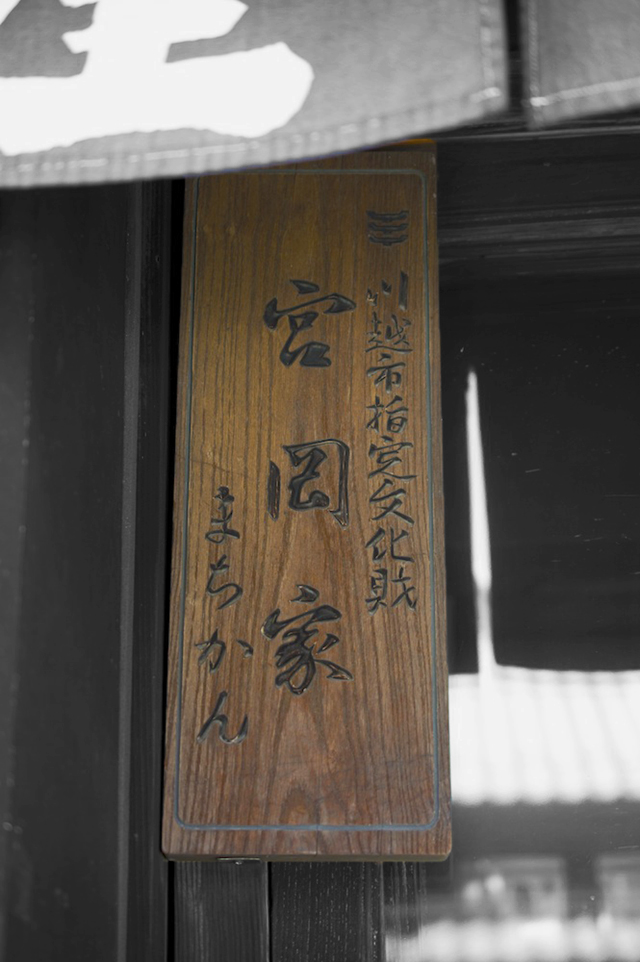 川越市指定文化財
宮岡家
まちかん